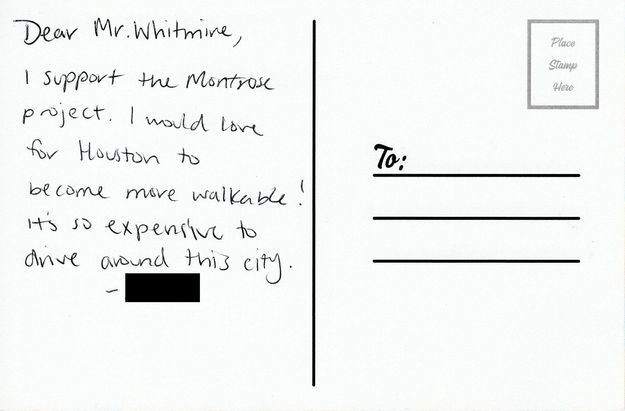 Dear Mr. Whitmire,
I support the Montrose
project. I would love
for Houston to
become more walkable!
It's so expensive to
drive around this city.
-
Place
Stamp
Here
To: